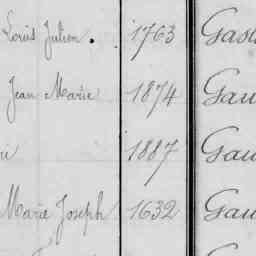 Louis Julien. 1763 Gast
Jean Marie 1874 Gau
ri 1887 Gau
Marie Joseph 1632 Gau